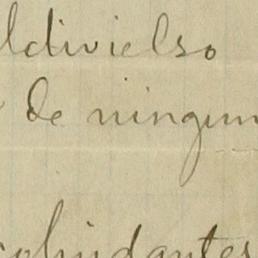 ldivielso
de ningun
colindantes